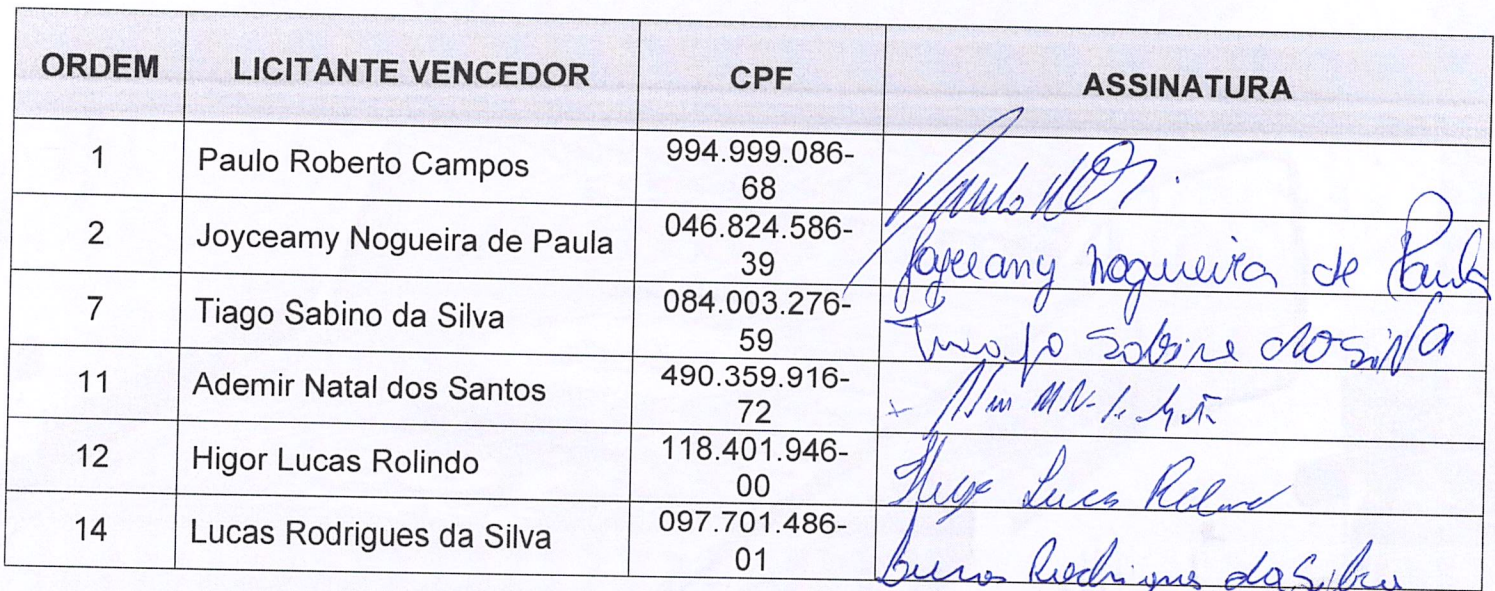 ORDEM LICITANTE VENCEDOR CPF ASSINATURA
1 Paulo Roberto Campos 994.999.086-
68 Paulo
2 Joyceamy Nogueira de Paula 046.824.586-
39 Joyceamy Nogueira de Paula
7 Tiago Sabino da Silva 084.003.276-
59 Tiago Sabino da Silva
11 Ademir Natal dos Santos 490.359.916-
72
12 Higor Lucas Rolindo 118.401.946-
00 Higor Lucas Rolindo
14 Lucas Rodrigues da Silva 097.701.486-
01 Lucas Rodrigues da Silva